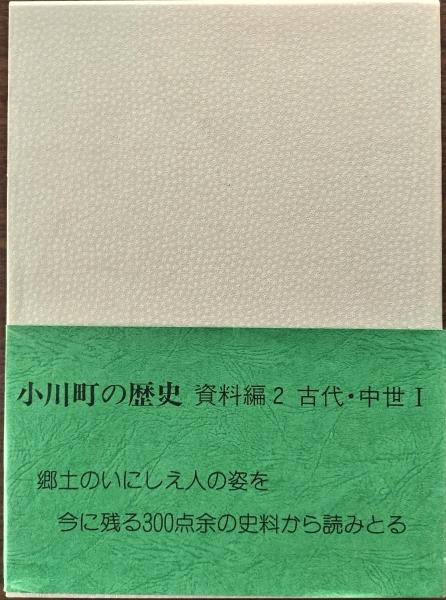 小川町の歴史 資料編2 古代・中世Ⅰ
郷土のいにしえ人の姿を
今に残る300点余の史料から読みとる